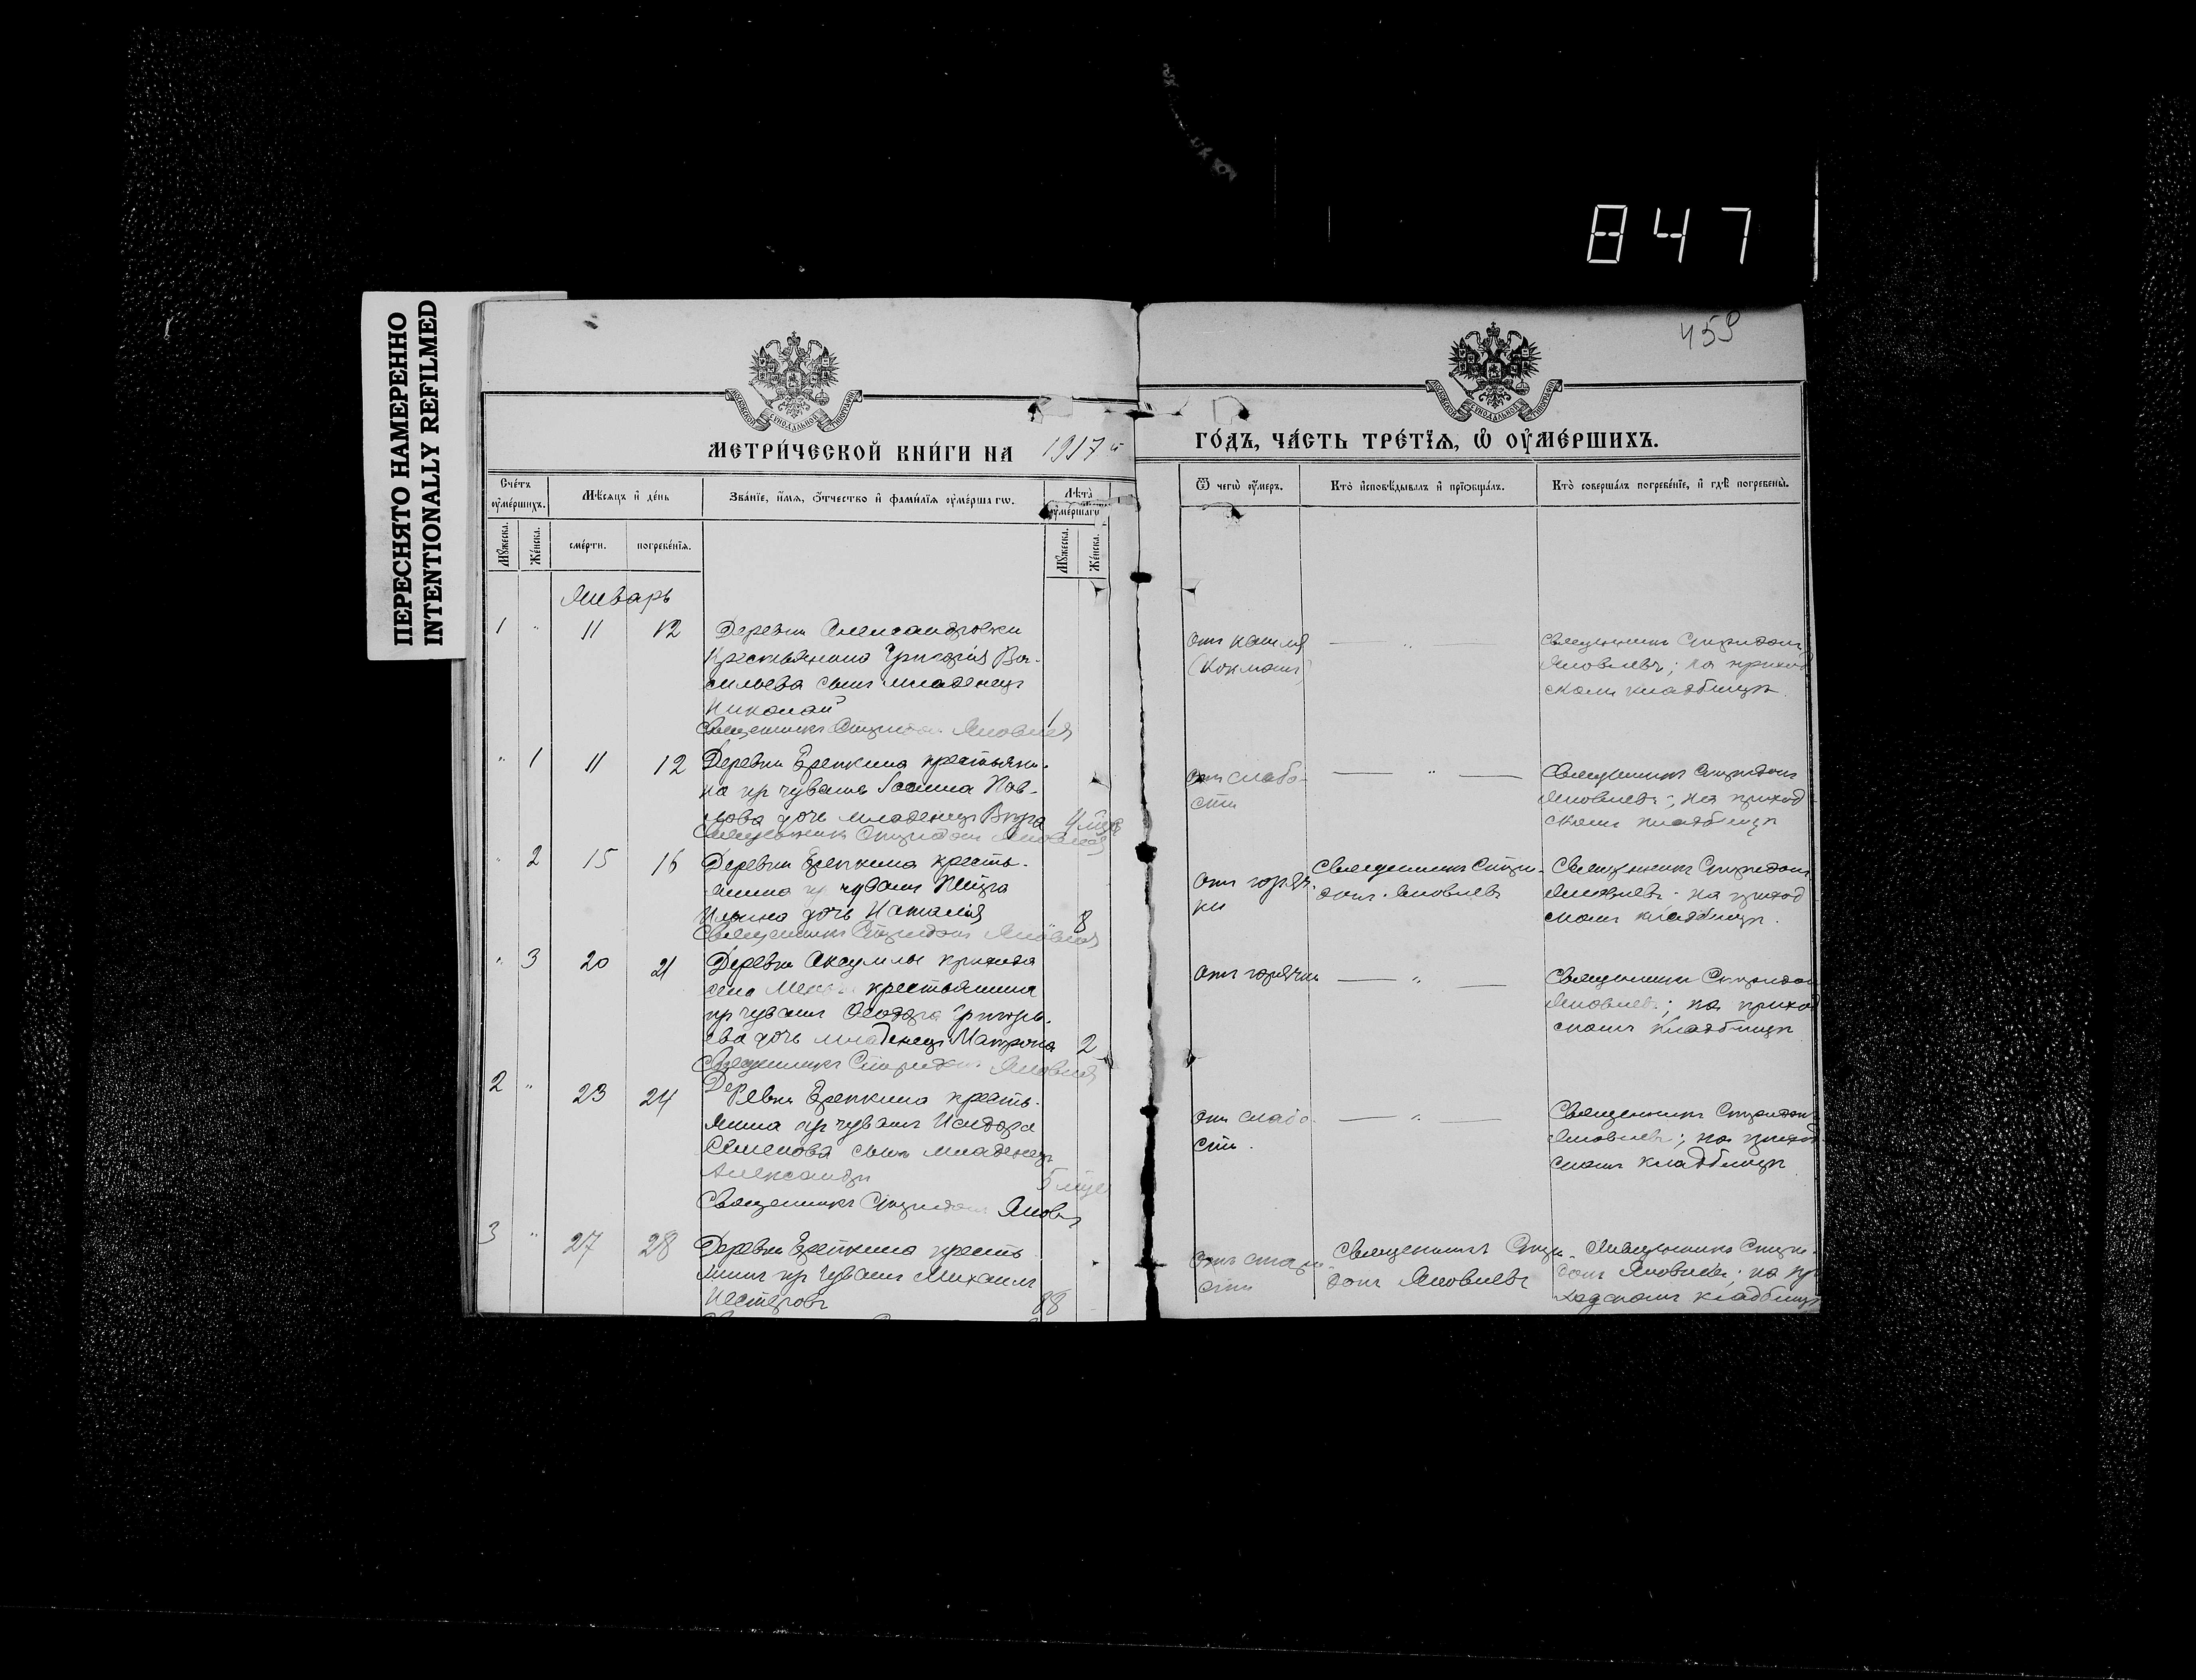 847
ПЕРЕСНЯТО НАМЕРЕННО
INTENTIONALLY REFILMED
459
МОСКОВСКОЙ СѴНОДАЛЬНОЙ ТИПОГРАФІИ
МОСКОВСКОЙ СѴНОДАЛЬНОЙ ТИПОГРАФІИ
МЕТРИ́ЧЕСКОЙ КНИ́ГИ НА 1917 й ГО́ДЪ, ЧА́СТЬ ТРЕ́ТЇѦ, Ѡ҆ ОУ҆МЕ́РШИХЪ.
Счéтъ ᲂу҆мéршихъ.
Мѣ́сѧцъ и҆ дéнь
Звáнїе, и҆́мѧ, ѻ҆́тчество и҆ фами́лїѧ ᲂу҆мéршагѡ.
Лѣ́та ᲂу҆мéршагѡ
Ѿ чегѡ̀ ᲂу҆́меръ.
Ктò и҆сповѣ́дывалъ и҆ прїѡбщáлъ.
Ктò совершáлъ погребéнїе, и҆ гдѣ̀ погребены̀.
Мꙋ́жеска.
Жéнска.
смéрти.
погребéнїѧ.
Мꙋ́жеска.
Жéнска.
Январь
1 " 11 12 Деревни Александровки
крестьянина Григорія Ва-
сильева сынъ младенецъ
Николай 1
Священникъ Спиридонъ Яковлевъ
отъ кашля
— " —
Священникъ Спиридонъ
Яковлевъ; на приход
скомъ кладбищѣ.
" 1 11 12 Деревни Ерепкина крестьяни-
на из чувашъ Пав-
лова дочь младенецъ Вѣра 4 мѣс
Священникъ Спиридонъ Яковлевъ
отъ слабо-
сти
— " —
Священникъ Спиридонъ
Яковлевъ; на приход
скомъ кладбищѣ
" 2 15 16 Деревни Ерепкина кресть-
янина из чувашъ Петра
Ильина дочь Наталія 8
Священникъ Спиридонъ Яковлевъ
отъ горяч-
ки
Священникъ Спири-
донъ Яковлевъ
Священникъ Спиридонъ
Яковлевъ; на приход
скомъ кладбищѣ.
" 3 20 21 Деревни прихода
села крестьянина
из чувашъ Ѳеодора Григорь-
ева дочь младенецъ Матрона 2
Священникъ Спиридонъ Яковлевъ
отъ горячки
— " —
Священникъ Спиридонъ
Яковлевъ; на приход
скомъ кладбищѣ
2 " 23 24 Деревни Ерепкина кресть-
янина из чувашъ Исидора
Семенова сынъ младенецъ
Александръ 5 мѣс
Священникъ Спиридонъ Яковл
отъ слабо-
сти.
— " —
Священникъ Спиридонъ
Яковлевъ; на приход
скомъ кладбищѣ
3 " 27 28 Деревни Ерепкина кресть
янинъ из чувашъ Михаилъ
Нестеровъ 88
отъ старо-
сти
Священникъ Спири-
донъ Яковлевъ
Священникъ Спири-
донъ Яковлевъ; на при
ходскомъ кладбищѣ